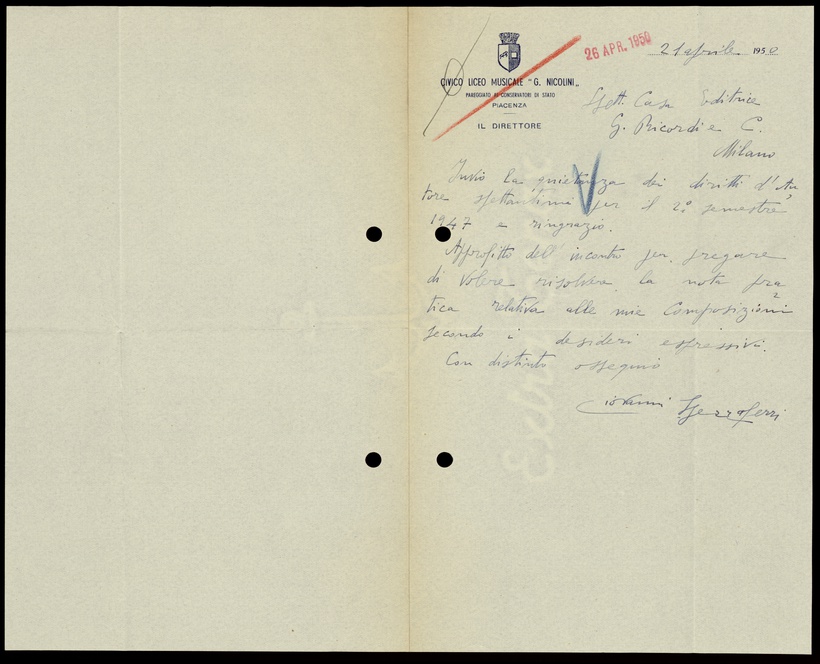 26 APR. 1950
21 aprile 1950
CIVICO LICEO MUSICALE "G. NICOLINI„
PAREGGIATO AI CONSERVATORI DI STATO
PIACENZA
IL DIRETTORE
Spett. Casa Editrice
G. Ricordi e C.
Milano
Invio la quietanza dei diritti d'Au
tore spettantimi per il 2º semestre
1947 e ringrazio.
Approfitto dell'incontro per pregare
di volere risolvere la nota pra
tica relativa alle mie Composizioni
secondo i desideri espressivi.
Con distinto ossequio
Giovanni Spezzaferri